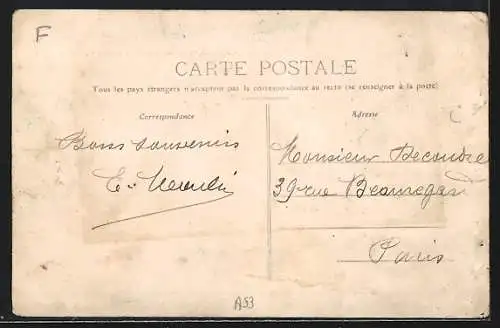 F
CARTE POSTALE
Tous les pays étrangers n'acceptent pas la correspondance au recto (se renseigner à la poste)
Correspondance
Adresse
Bons souvenirs
Monsieur Decoudre
39 rue Beauregard
Paris
A53